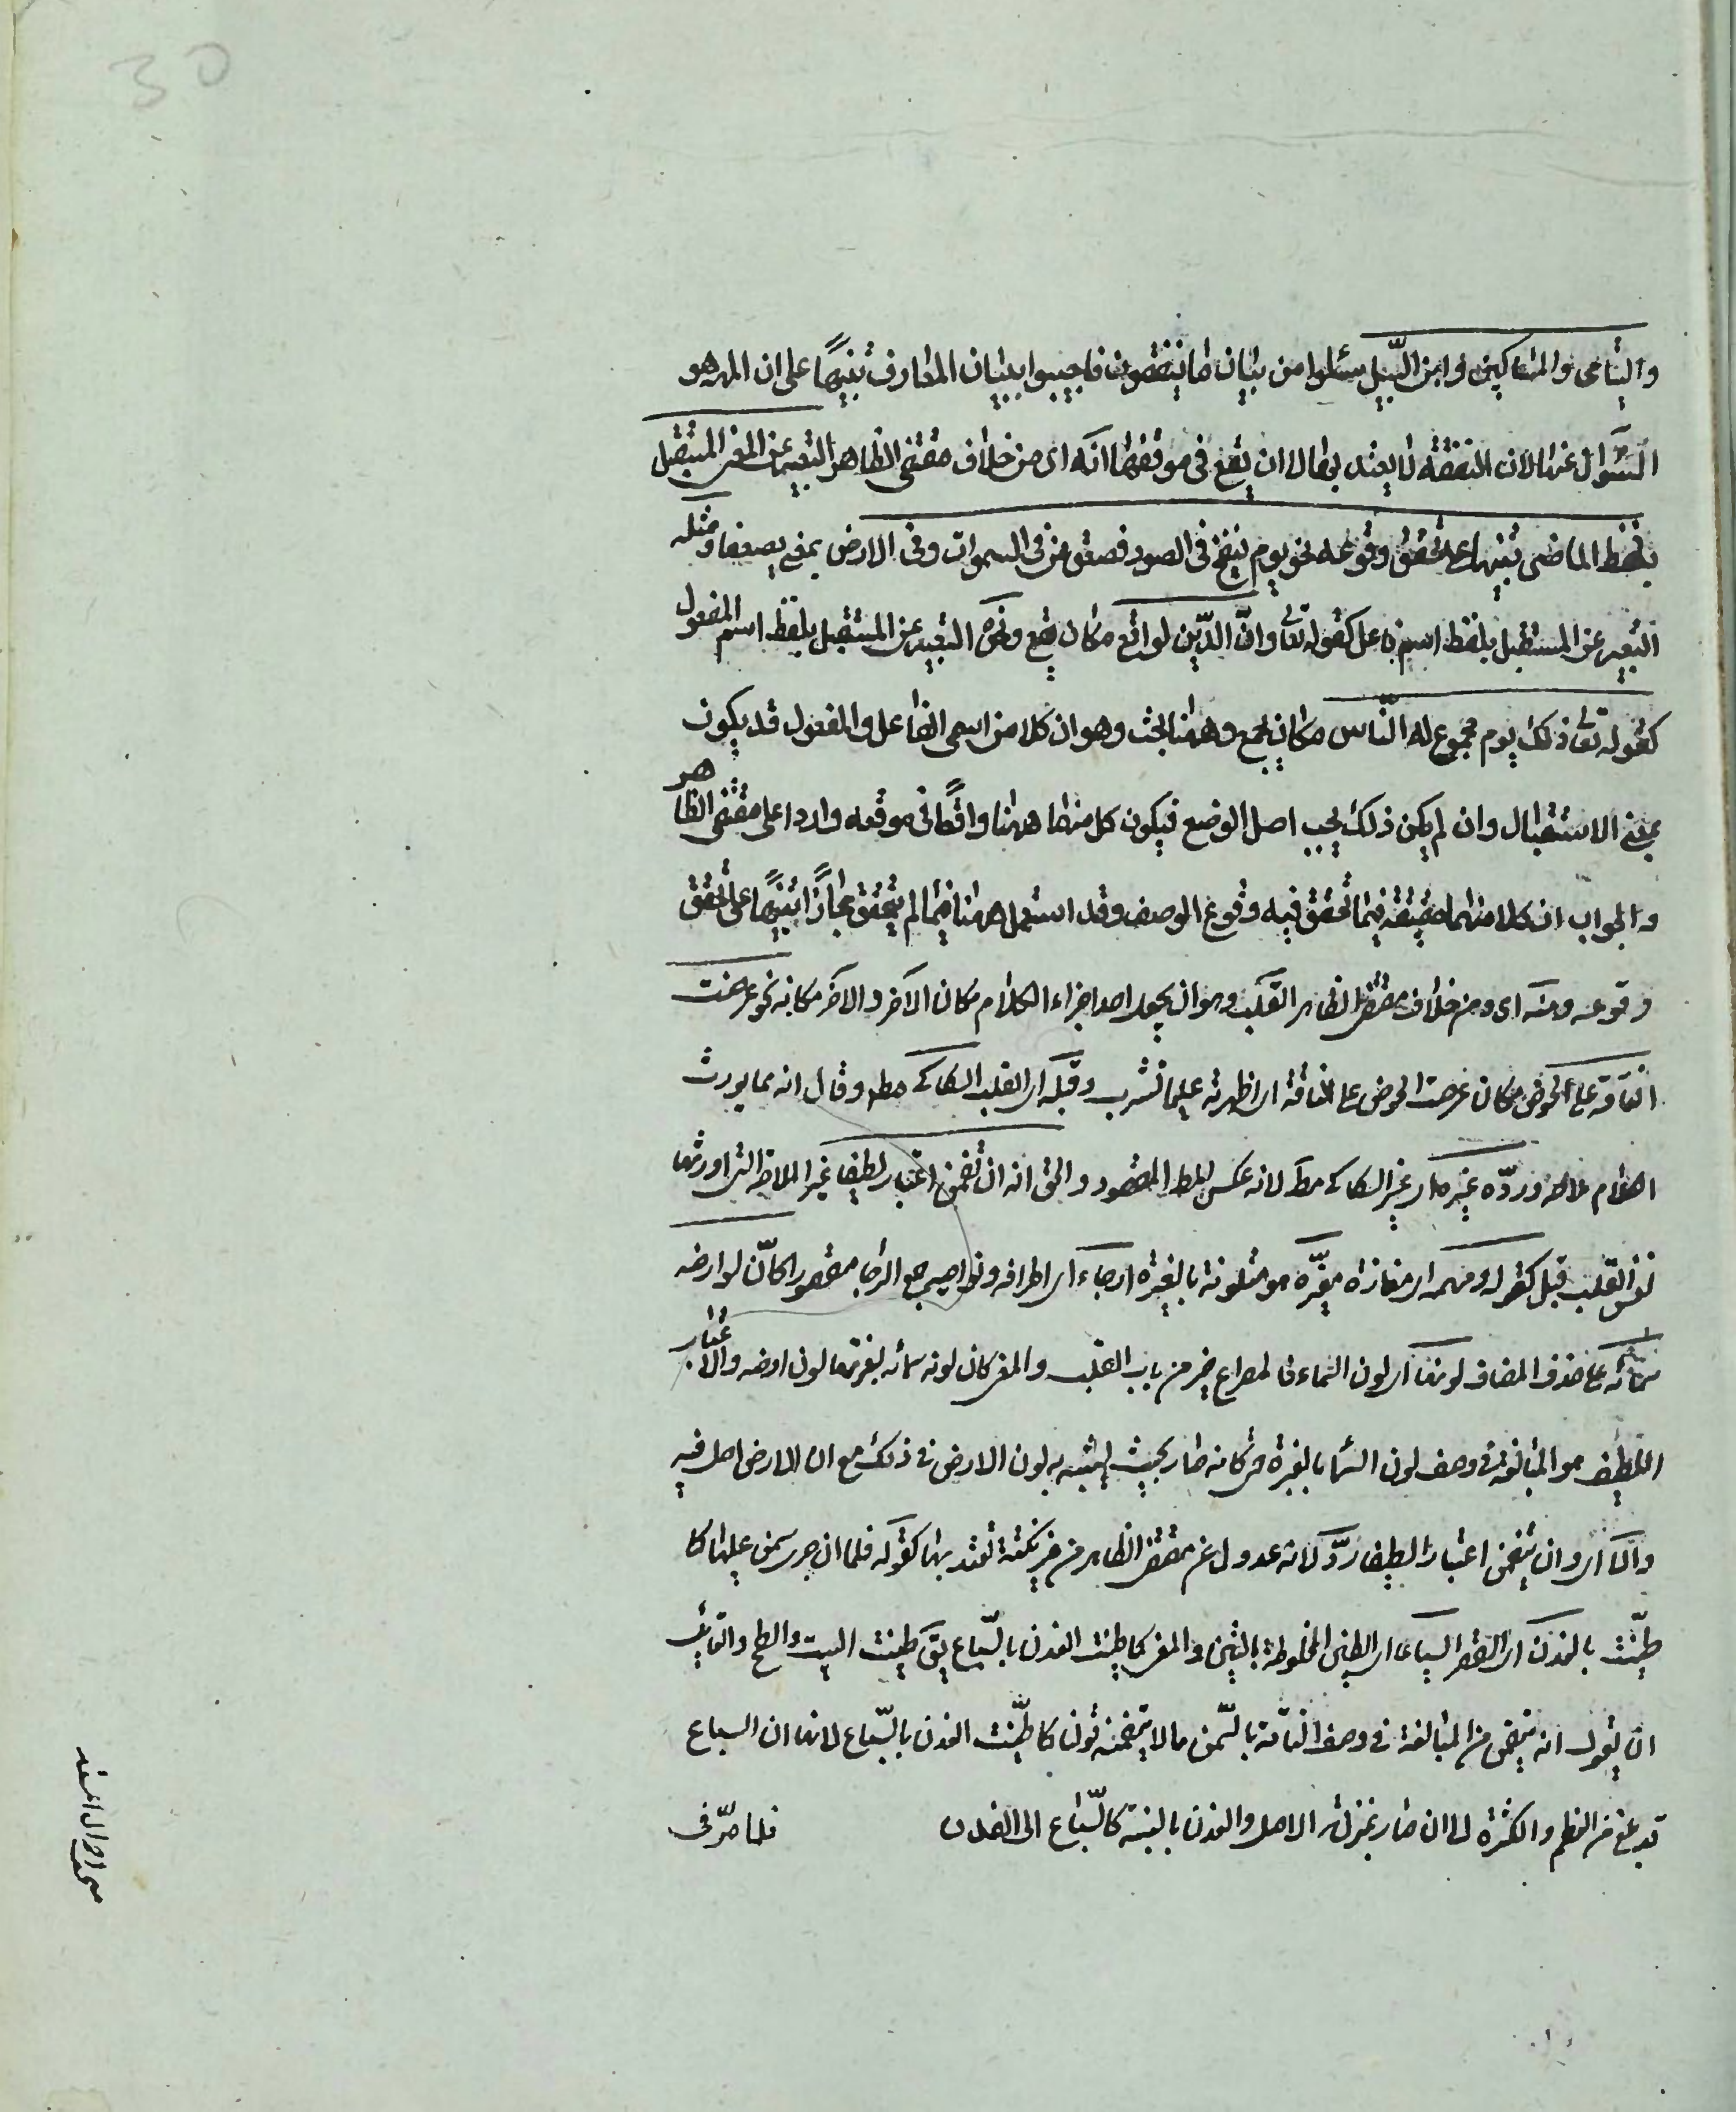 واليتامى والمساكين وابن السبيل سئلوا من بيان ما ينفقون فاجيبوا ببيان المصارف تنبيهًا على ان المهم هو
السّؤال عنها لان النفقة لا يعتد بها الا ان يقع فى موقعها انه اى من خلاف مقتضى الظاهر التعبير عن المعنى المستقبل
بلفظ الماضى تنبيها على تحقق وقوعه نحو يوم ينفخ فى الصور فصعق من فى السموات وفى الارض بمعنى يصعق ومثله
التعبير عن المستقبل بلفظ اسم فاعل كقوله تعا وانّ الدّين لواقع مكان يقع ونحوه التعبير عن المستقبل بلفظ اسم المفعول
كقوله تعا ذلك يوم مجموع له النّاس مكان يجمع وههنا بحث وهو ان كلا من اسمى الفاعل والمفعول قد يكون
بمعنى الاستقبال وان لم يكن ذلك بحسب اصل الوضع فيكون كل منهما ههنا واقعًا فى موقعه واردا على مقتضى الظاهر
والجواب ان كلا منهما حقيقة فيما تحقق فيه وقوع الوصف وقد استعمل ههنا فيما لم يتحقق مجازًا تنبيهًا على تحقق
وقوعه ومنه اى ومن خلاف مقتضى الظاهر القلب وهو ان يجعل احد اجزاء الكلام مكان الاخر والاخر مكانه نحو عرضت
الناقة على الحوض مكان عرضت الحوض على الناقة اى اظهرته عليها لتشرب وقبله اى القلب السكاكى مط وقال انه مما يورث
الكلام ملاحة وردّه غيره اى غير السكاكى مط لانه عكس المط المقصود والحق انه ان تضمن اعتبارا لطيفا غير الملاحة التى اورثها
نفس القلب قبل كقوله ومهمه اى مفازة مغبرّة هو متلونة بالغبرة ارجاءه اى اطرافه ونواحيه جمع الرجا مقصورا كانّ لون ارضه
سمائه على حذف المضاف لونها اى لون السماء فالمصراع الاخير من باب القلب والمعنى كان لون سمائه لغبرتها لون ارضه والاعتبار
اللطيف هو المبالغة فى وصف لون السماء بالغبرة حتى كانه صار بحيث يشبه به لون الارض فى ذلك مع ان الارض اصل فيه
والا اى وان لم يتضمن اعتبارا لطيفا ردّ لانه عدول عن مقتضى الظاهر من غير نكتة تعتد بها كقوله فلما ان جرى سمن عليها كما
طيّنت بالفدن اى القصر السياعا اى الطين المخلوط بالتبن والمعنى كما طينت الفدن بالسّياع يق طينت البيت والسطح ولقائل
ان يقول انه يتضمن من المبالغة فى وصف الناقة بالسّمن ما لا يتضمنه قولنا كما طيّنت الفدن بالسّياع لايهامه ان السياع
قد بلغ من العظم والكثرة الى ان صار بمنزلة الاصل والفدن بالنسبة كالسّياع الى الفدن
فلما صرّفى